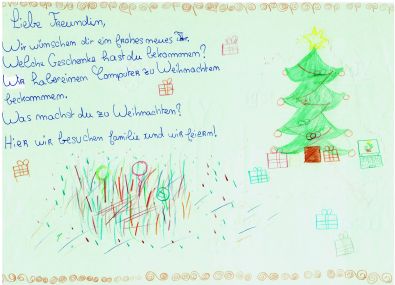 Liebe Freundin,
Wir wünschen dir ein frohes neues
Welche Geschenke hast du bekommen?
Wir haben einen Computer zu Weihnachten
beckommen.
Was machst du zu Weihnachten?
Hier wir besuchen familie und wir feiern!